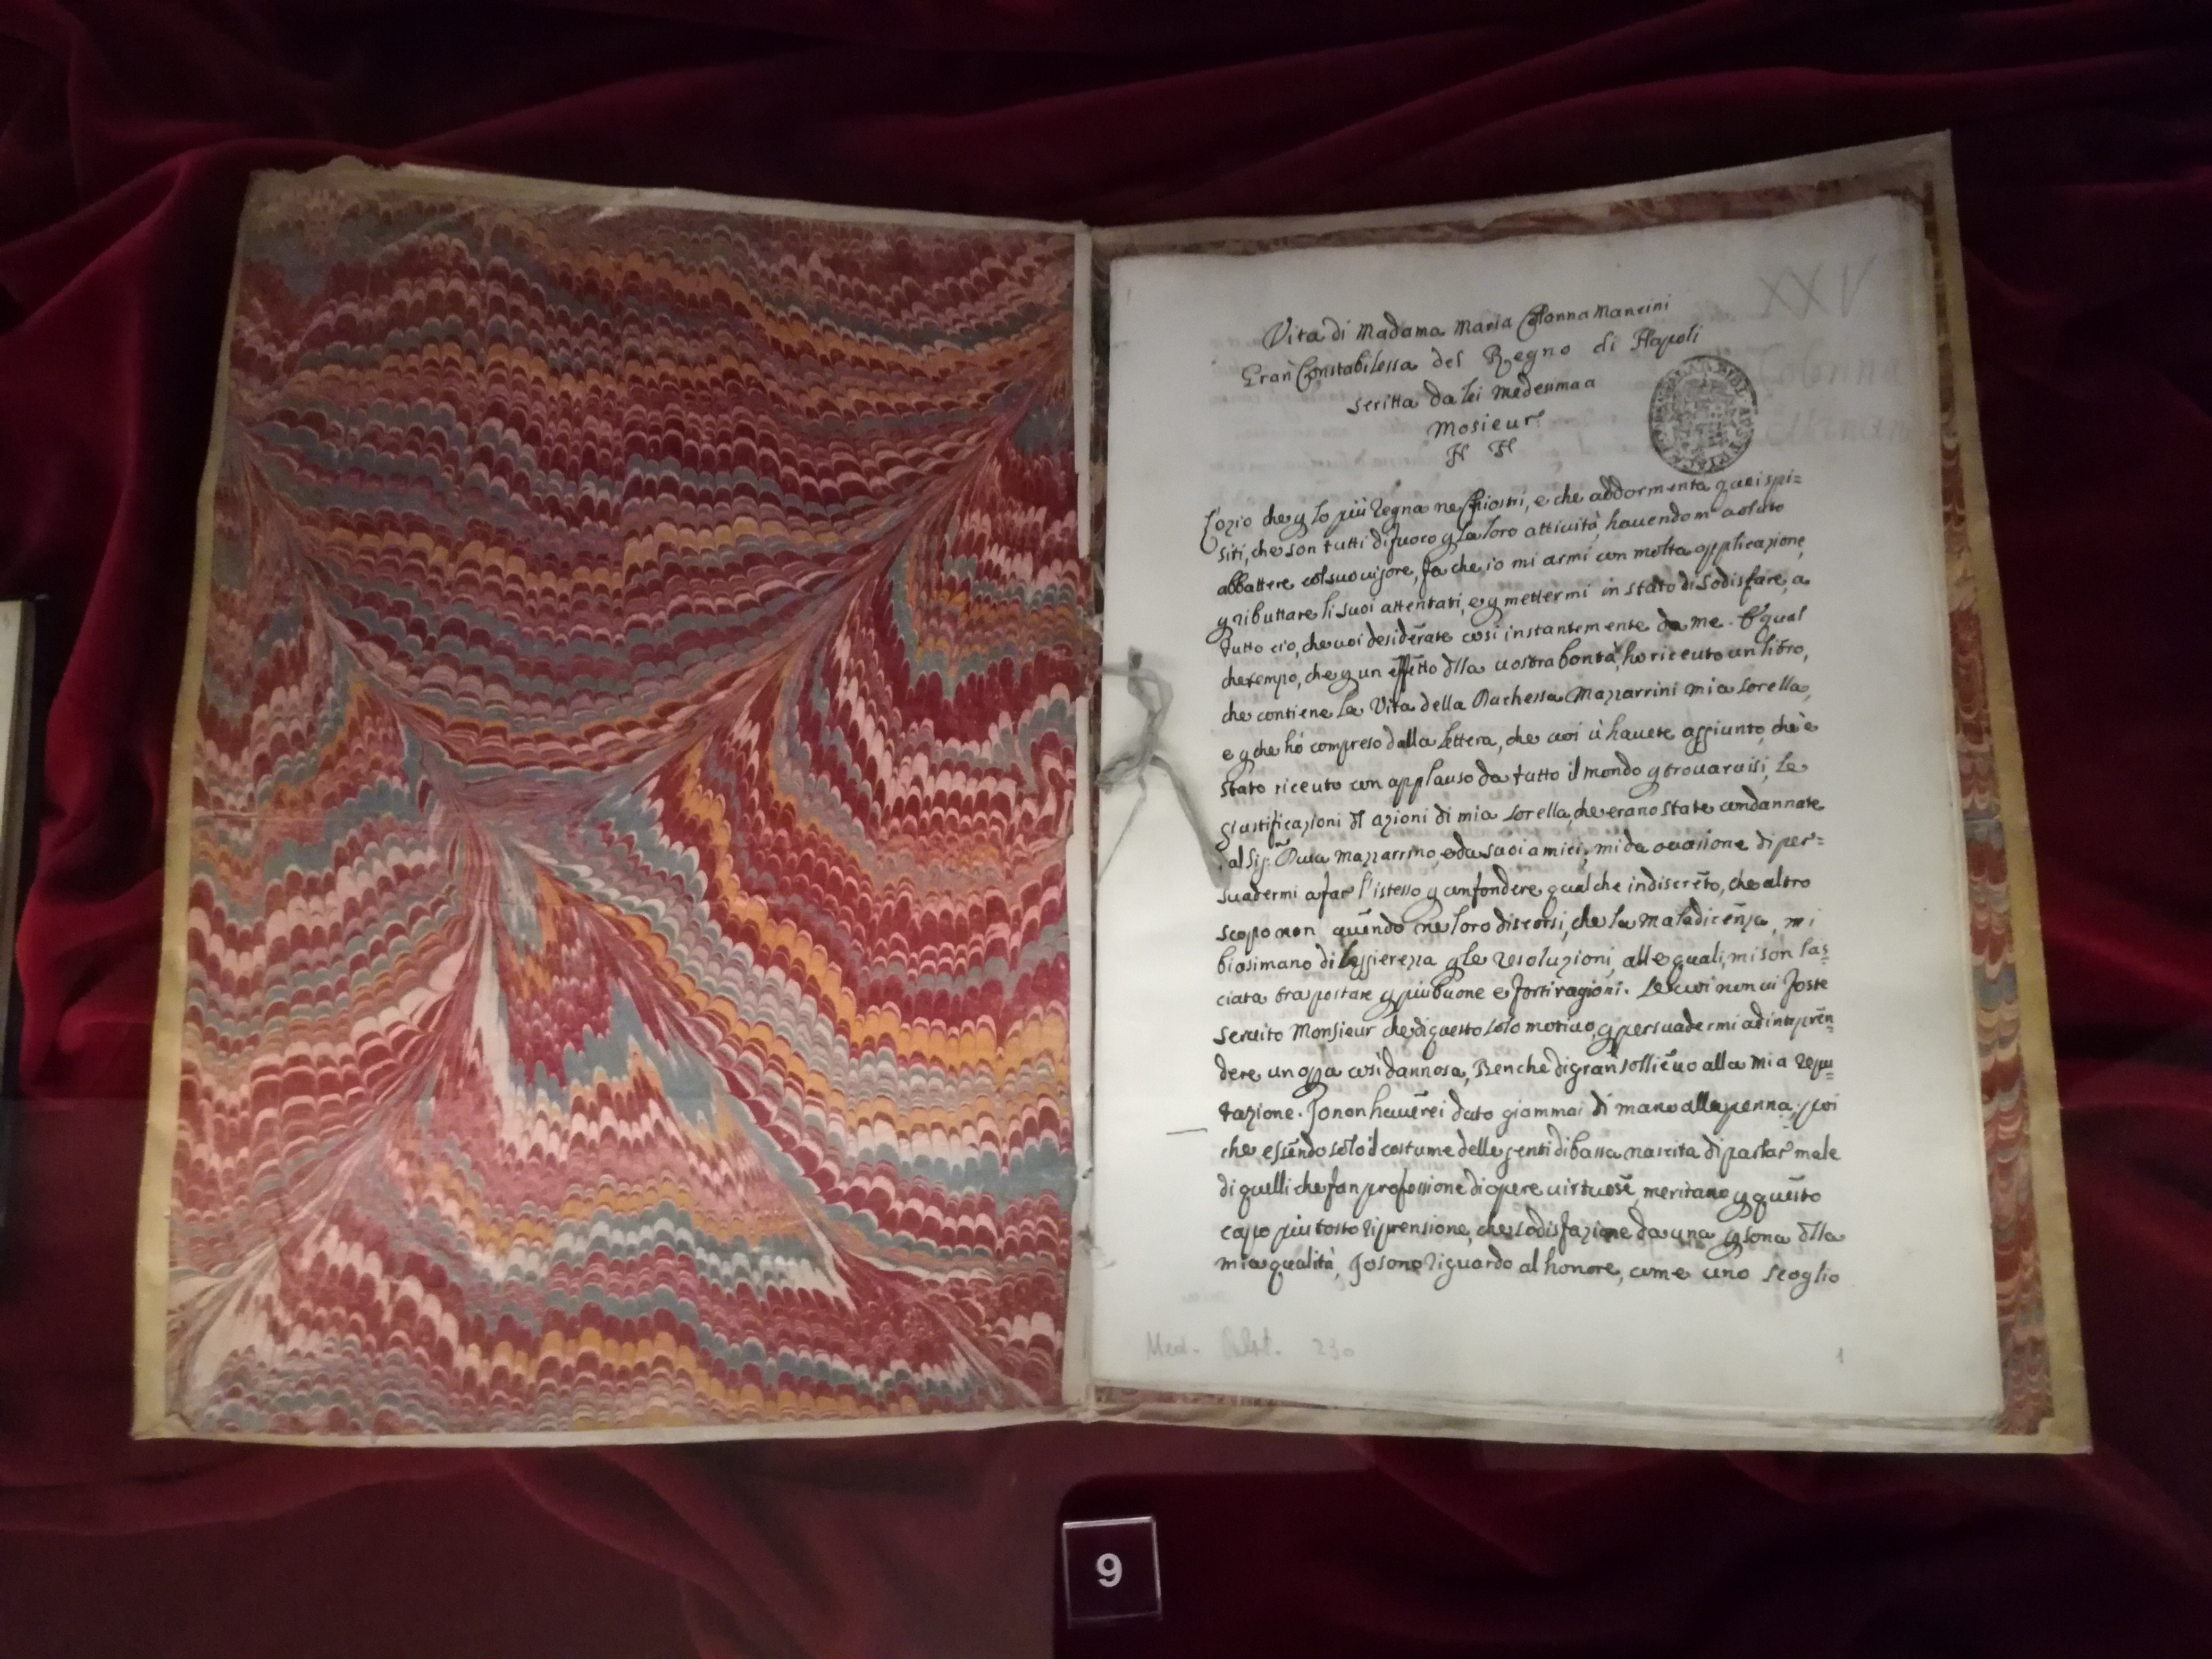 Vita di Madama Maria Colonna Mancini
Gran Constabilessa del Regno di Napoli
scritta da lei medesima a
Mosieur
N N
L'ozio che p lo più regna ne Chiostri, e che addormenta quei spi=
riti, che son tutti di fuoco p la loro attività, havendom
abbattere col suo vigore, fa che io mi armi con molta applicazione,
p ributtare li suoi attentati, e p mettermi in stato di sodisfare, a
tutto ciò, che voi desiderate così instantemente da me. E qual
che tempo, che p un effetto dlla vostra bontà, ho riceuto un libro,
che contiene la Vita della Duchessa Mazzarrini mia sorella,
e p che hò compreso dalla lettera, che voi ù havete aggiunto, che è
stato riceuto con applauso da tutto il mondo p trovarvisi, le
giustificazioni dl azioni di mia sorella, che erano state condannate
al Sig: Duca Mazzarrino, e da suoi amici, mi da occasione di per=
suadermi a far l'istesso p confondere qualche indiscreto, che altro
scopo non avendo ne loro discorsi, che la maladicenza, mi
biasimano di leggierezza p le resoluzioni, alle quali, mi son las=
ciata traportare p più buone e forti ragioni. Se voi non vi foste
servito Monsieur che di questo solo motivo, p persuadermi ad intrapren=
dere un opa così dannosa, Benche di gran sollievo alla mia repu=
tazione. Io non haverei dato giammai di mano alla penna, poi
che essendo solo il costume delle genti di bassa nascita di parlar male
di quelli che fan professione di opere virtuose, meritano p questo
capo più tosto riprensione, che sodisfazione da una psona dlla
mia qualità, Io sono riguardo al honore, come uno scoglio
Med. Palat. 230
1
XXV
9